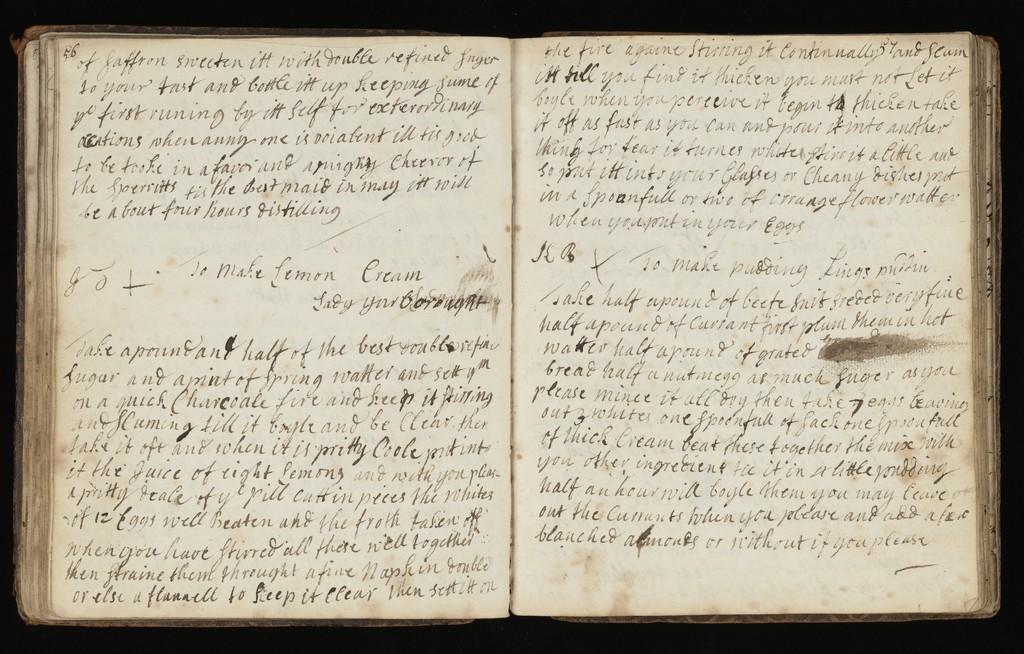 56
of Saffron sweeten itt with double refined Suger
to your tast and bottle itt up keeping sume of
ye first runing by itt self for exterordinary
ocations when anny one is voialent ill tis good
to be tooke in a favor and a mighty Cheeror of
the Sperritts tis the best maid in may itt will
be about four hours distilling
To make Lemon Cream
Lady
Take a pound and half of the best double refine
Sugar and a pint of Spring watter and sett ym
on a quick Charcoale fire and keep it stirring
and Scuming till it boyle and be Clear then
take it oft and when it is pritty Coole put into
it the Juice of eight Lemons and with you please
a pritty deale of ye pill cutt in peces the whites
of 12 Eggs well Beaten and the froth taken off
when you have stirred all these well together
then straine them throught a fine Napkin double
or else a flannell to keep it Clear then sett itt on
57
the fire againe Stirring it Continnually and Scum
itt till you find it thicken you must not Let it
boyle when you perceive it begin to thicken take
it oft as fast as you can and pour it into another
thing for fear it turnes white stirr it a little and
so put itt into your Glasses or Cheany dishes put
in a Spoonfull or two of orrange flower watter
when you put in your Eggs
To make pudding Kings puddin
Take half a pound of beefe suit sreded very fine
half a pound of Currant first plum them in hot
watter half a pound of grated
bread half a nutmegg as much suger as you
please mince it all dry then take 7 eggs leaving
out 2 whites one Spoonfull of Sack one Spoonfull
of thick Cream beat these together the mix with
you other ingredient tie it in a little pudding
half an hour will boyle them you may leave
out the Currants when you please and add a few
blanched almonds or without if you please